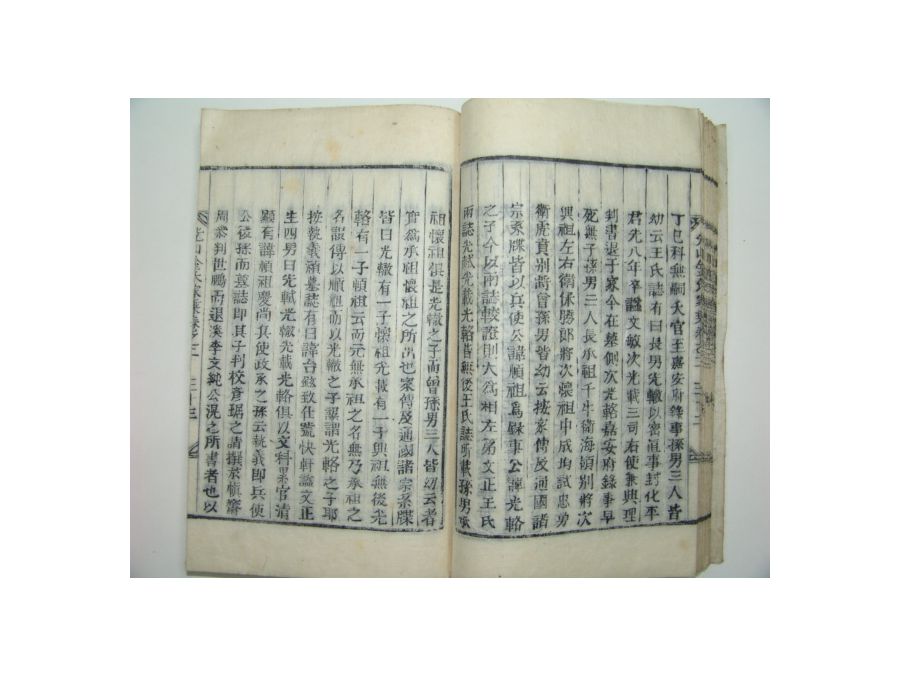 丁巳科無嗣天官王嘉安府錄事孫男三人皆
幼云王氏誌有曰長男光轍以密直事封化平
君先八年卒諡文敏次光載三司右使兼典理
判書退于家今在䓁側次光輅嘉安府錄事早
死無子孫男三人長承祖千牛衛海領別將次
興祖左右衛保勝郞將次懷祖中成均試忠勇
衛虎賁別將曾孫男皆幼云按家傳及通國諸
宗系牒皆以兵使公諱順祖爲錄事公諱光輅
之子今以兩誌較證則大爲相左第文正王氏
兩誌光軾光載光輅皆無後王氏誌所載孫男承
祖懷祖俱是光轍之子而曾孫男三人皆幼云者
實爲承祖懷祖之所出也家傳及通國諸宗系牒
皆曰光轍有一子懷祖光載有一子興祖無後光
輅有一子順祖云而元無承祖之名無乃承祖之
名誤傳以順祖而以光轍之子誤謂光輅之子耶
按執義禎墓誌有曰諱台鉉致仕號快軒諡文正
生四男曰光軾光轍光載光輅俱以文科累官淸
顯有諱順祖慶尙兵使政承之孫云執義即兵使
公後孫而墓誌即其子判校彦琚之請撰於愼齋
周叅判世鵬而退溪李文純公滉之所書者也以
光山金氏家乘卷之二 二十三